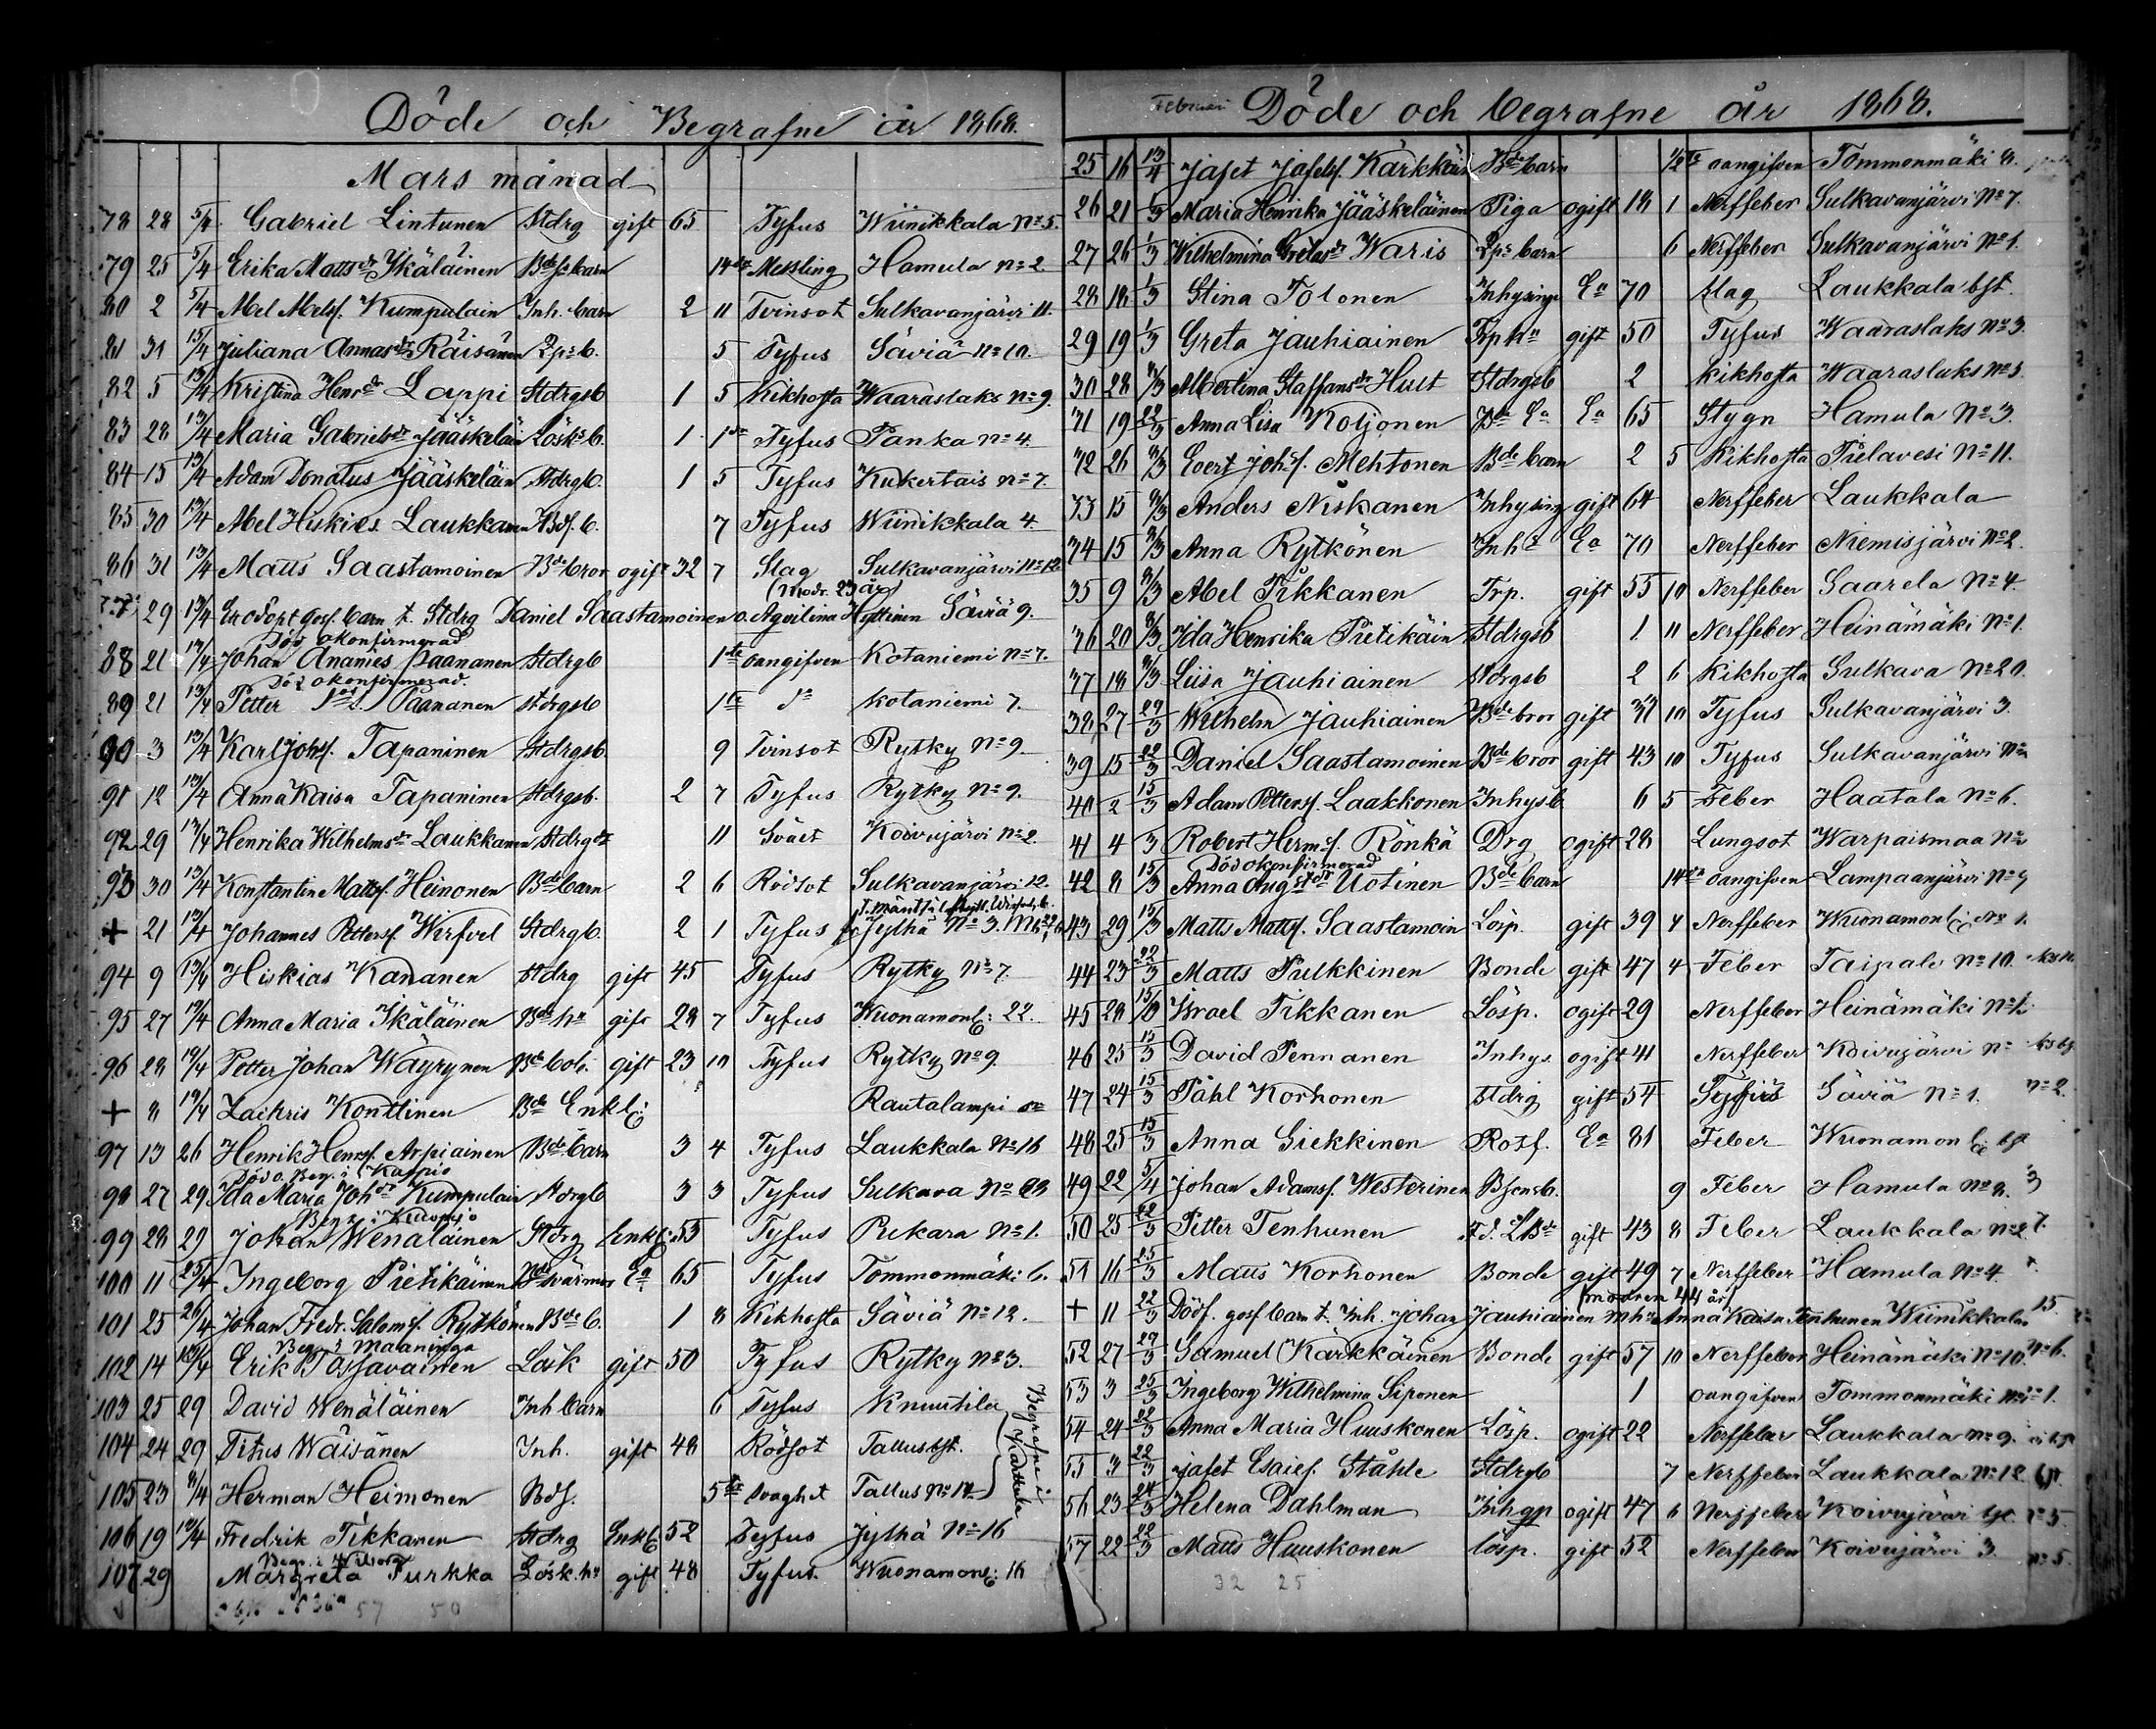 Döde och Begrafne år 1868.
Mars månad
78 28 5/4 Gabriel Lintunen Stdrg gift 65 Tyfus Wiinikkala No 5.
79 25 5/4 Erika Mattsdr Ikäläinen Bdes barn 14 dr Messling Hamula No 2
80 2 5/4 Abel Abelsf. Kumpulain Inh. barn 2 11 Tvinsot Sulkavanjärvi 11.
81 31 13/4 Juliana Annasdr Räisänen Lps b. 5 Tyfus Säviä No 10.
82 5 13/4 Kristina Henrdr Lappi Stdrgsb 1 5 Kikhosta Waaraslaks No 9.
83 28 13/4 Maria Gabrielsdr Jääskeläin Lösk. b. 1 1 de Tyfus Panka No 4.
84 15 13/4 Adam Donatus Jääskeläin Stdrgb. 1 5 Tyfus Kukertais No 7.
85 30 13/4 Abel Hiskies Laukkanen Bdf. b. 7 Tyfus Wiinikkala 4.
86 31 13/4 Matts Saastamoinen Bde bror ogift 32 7 Slag Sulkavanjärvi No 12
(Modr. 23 år)
29 13/4 gos. barn t. Stdrg Daniel Saastamoinen o. Aqvilina Hyttinen Säviä 9.
Död okonfirmerad
88 21 13/4 Johan Ananies Paananen Stdrgb 1 de oangifven Kotaniemi No 7.
Död okonfirmerad.
89 21 13/4 Petter Paananen Stdrgsb 1 de do Kotaniemi 7.
90 3 13/4 Karl Johsf. Tapaninen Stdrgsb. 9 Tvinsot Rytky No 9.
91 12 13/4 Anna Kaisa Tapaninen Stdrgsb. 2 7 Tyfus Rytky No 9.
92 29 13/4 Henrika Wilhelmsdr Laukkanen Stdrg dr 11 Svält Koivujärvi No 2.
93 30 13/4 Konstantin Mattsf. Heinonen Bde barn 2 6 Rödsot Sulkavanjärvi 12.
+ 21 13/4 Johannes Pettersf. Wirfvel Stdrgb. 2 1 Tyfus Jylhä No 3.
94 9 13/4 Hiskias Kananen Stdrg gift 45 Tyfus Rytky No 7.
95 27 19/4 Anna Maria Ikäläinen Bde hu gift 28 7 Tyfus Wuonamonl: 22.
96 28 19/4 Petter Johan Wäyrynen Bde bol. gift 23 10 Tyfus Rytky No 9.
+ 8 19/4 Zachris Konttinen Bde Enkl: Rautalampi sn
97 13 26 Henrik Henrsf. Arpiainen Bde barn 3 4 Tyfus Laukkala No 16
Död o. Begr. i Kuopio
98 27 29 Ida Maria Johdr Kumpulain Stdrgb 3 3 Tyfus Sulkava No 23
Begr. i Kuopio
99 28 29 Johan Wenäläinen Stdrg Enkl: 53 Tyfus Pukara No 1.
100 11 25/4 Ingeborg Pietikäinen Bde svärmor Ea 65 Tyfus Tommonmäki 6.
101 25 26/4 Johan Fredr. Salomsf. Rytkönen Bde b. 1 8 Kikhosta Säviä No 12.
Begr. i Maaninga
102 14 12/4 Erik Tossavainen Lösk gift 50 Tyfus Rytky No 3.
103 25 29 David Wenäläinen Inh barn 6 Tyfus Knuutila
104 24 29 Titus Wäisänen Inh. gift 48 Rödsot Tallus bst.
105 23 9/4 Herman Heimonen Bdf. 5 de svaghet Tallus No 12
Begrafne i Karttula
106 19 12/4 Fredrik Tikkanen Stdrg Enkl 52 Tyfus Jylhä No 16
Begr. i Wiborg
107 29 Margreta Turkka Lösk. hu gift 48 Tyfus Wuonamonl: 16
57 50
Februari Döde och begrafne år 1868.
25 16 13/4 Jafet Jafetsf. Kärkkäin Bde barn 1/2 Te oangifven Tommonmäki 8.
26 21 1/3 Maria Henrika Jääskeläinen Piga ogift 18 1 Nerffeber Sulkavanjärvi No 7.
27 26 1/3 Wilhelmina Gretasdr Waris Lps barn 6 Nerffeber Sulkavanjärvi No 1.
28 18 1/3 Stina Tolonen Inhysing Ea 70 slag Laukkala bst.
29 19 1/3 Greta Jauhiainen Trp hu gift 50 Tyfus Waaraslaks No 3.
30 28 8/3 Albertina Staffansdr Hult Stdrgsb 2 Kikhosta Waaraslaks No 3.
31 19 22/3 Anna Lisa Koljonen Ea 65 Stygn Hamula No 3.
32 26 8/3 Evert Johsf. Mehtonen Bde barn 2 5 Kikhosta Pielavesi No 11.
33 15 8/3 Anders Niskanen Inhysing gift 64 Nerffeber Laukkala
34 15 8/3 Anna Rytkönen Inh Ea 70 Nerffeber Niemisjärvi No 2.
35 9 8/3 Abel Tikkanen Trp. gift 55 10 Nerffeber Saarela No 4.
36 20 8/3 Ida Henrika Pietikäin Stdrgsb 1 11 Nerffeber Heinämäki No 1.
37 18 8/3 Liisa Jauhiainen Stdrgsb 2 6 Kikhosta Sulkava No 20.
38 27 29/3 Wilhelm Jauhiainen Bde bror gift 31 10 Tyfus Sulkavanjärvi 3.
39 15 22/3 Daniel Saastamoinen Bde bror gift 43 10 Tyfus Sulkavanjärvi No
40 2 15/3 Adam Pettersf. Laakkonen Inhysb 6 5 Feber Haatala No 6.
41 4 3 Robert Hermsf. Rönkä Drg ogift 28 Lungsot Warpaismaa No
Död okonfirmerad
42 8 15/3 Anna Augstdr Uotinen Bde barn 14 da oangifven Lampaanjärvi No 9
43 29 15/3 Matts Mattsf. Saastamoin Lösp. gift 39 4 Nerffeber Wuonamonl: No 1.
44 23 22/3 Matts Pulkkinen Bonde gift 47 4 Feber Taipale No 10.
45 28 15/3 Israel Tikkanen Lösp. ogift 29 Nerffeber Heinämäki No
46 25 15/3 David Pennanen Inhys. ogift 41 Nerffeber Koivujärvi No
47 24 15/3 Påhl Korhonen Stdrg gift 54 Tyfus Säviä No 1.
48 25 15/3 Anna Siekkinen Rotf. Ea 81 Feber Wuonamonl: bst
49 22 5/4 Johan Adamsf. Westerinen Bjonsb. 9 Feber Hamula No 8.
50 25 22/3 Petter Tenhunen F.d. LBde gift 43 8 Feber Laukkala No 2
51 16 25/3 Matts Korhonen Bonde gift 49 7 Nerffeber Hamula No 4.
(modren 44 år)
+ 11 22/3 Dödf. gosf barn t. Inh. Johan Jauhiainen m hu Anna Kaisa Tenhunen Wiinikkala
52 27 29/3 Samuel Kärkkäinen Bonde gift 57 10 Nerffeber Heinämäki No 10.
53 3 25/3 Ingeborg Wilhelmina Siponen 1 oangifven Tommonmäki
54 24 22/3 Anna Maria Huuskonen Lösp. ogift 22 Nerffeber Laukkala No 9.
55 3 22/3 Jafet Esaief. Ståhle Stdrgb 7 Nerffeber Laukkala No 12
56 23 24/3 Helena Dahlman Inhgp ogift 47 6 Nerffeber Koivujärvi bst.
57 22 22/3 Matts Huuskonen lösp. gift 52 Nerffeber Koivujärvi 3.
32 25